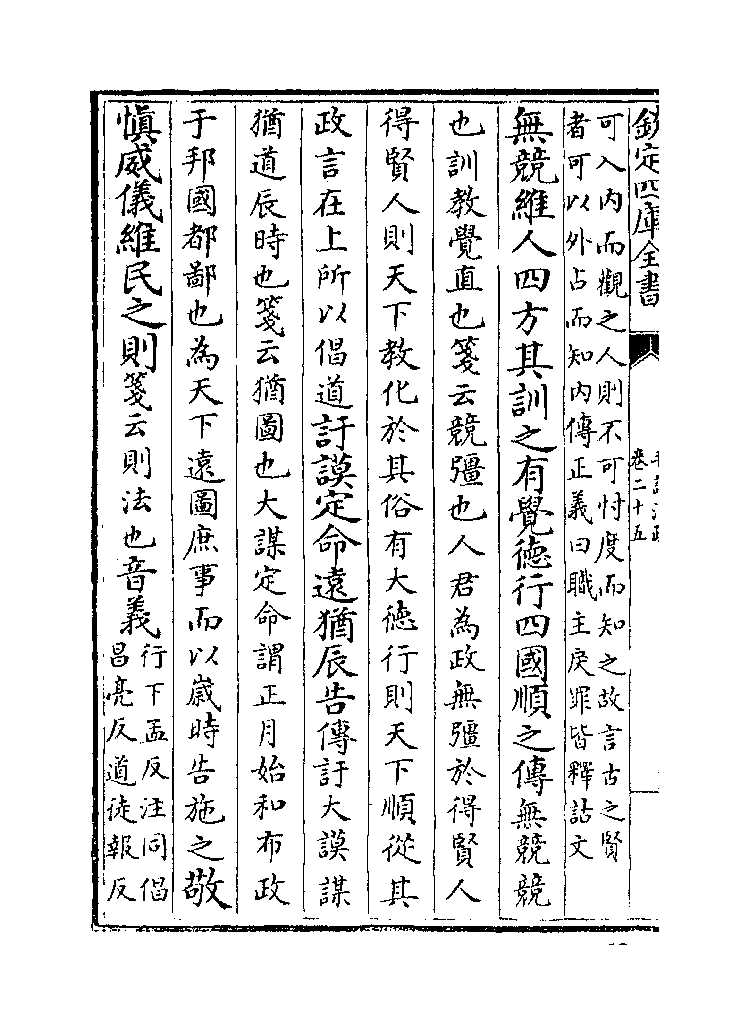 欽定四庫全書
卷二十五
可入內而觀之人則不可忖度而知之故言古之賢
者可以外占而知內傳正義曰職主戾罪皆釋詁文
無競維人四方其訓之有覺徳行四國順之傳無競競
也訓教覺直也箋云競彊也人君為政無彊於得賢人
得賢人則天下教化於其俗有大徳行則天下順從其
政言在上所以倡道訏謨定命遠猶辰告傳訏大謨謀
猶道辰時也箋云猶圖也大謀定命謂正月始和布政
于邦國都鄙也為天下遠圖庶事而以嵗時告施之敬
慎威儀維民之則箋云則法也音義
行下孟反注同倡
昌亮反道徒報反